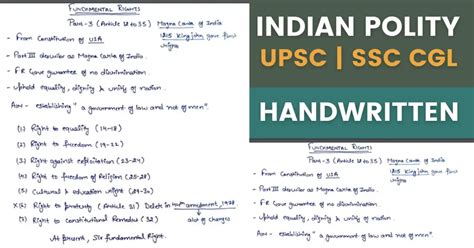 FUNDAMENTAL RIGHTS
Part-3 (Article 12 to 35) Magna Carta of India
1215 King John gave first rights
- From Constitution of USA
- Part III describe as Magna Carta of India.
- FR Give guarantee of no discrimination.
- Uphold equality, dignity & unity of nation.
Aim - establishing "a government of law and not of men".
(1) Right to equality (14-18)
(2) Right to freedom (19-22)
(3) Right against exploitation (23-24)
(4) Right to freedom of Religion (25-28)
(5) Cultural & education right (29-30)
X(6) Right to property (Article 31) Delete in 44th amendment, 1978
(7) Right to Constitutional Remedies (32) → alot of changes
At present, Six fundamental Right.
INDIAN POLITY
UPSC | SSC CGL
HANDWRITTEN
FUNDAMENTAL RIGHTS
Part-3 (Article 12 to 35) Magna Carta of India
1215 King John gave first rights
- From Constitution of USA
- Part III describe as Magna Carta of India.
- FR Give guarantee of no discrimination.
- Uphold equality, dignity & unity of nation.